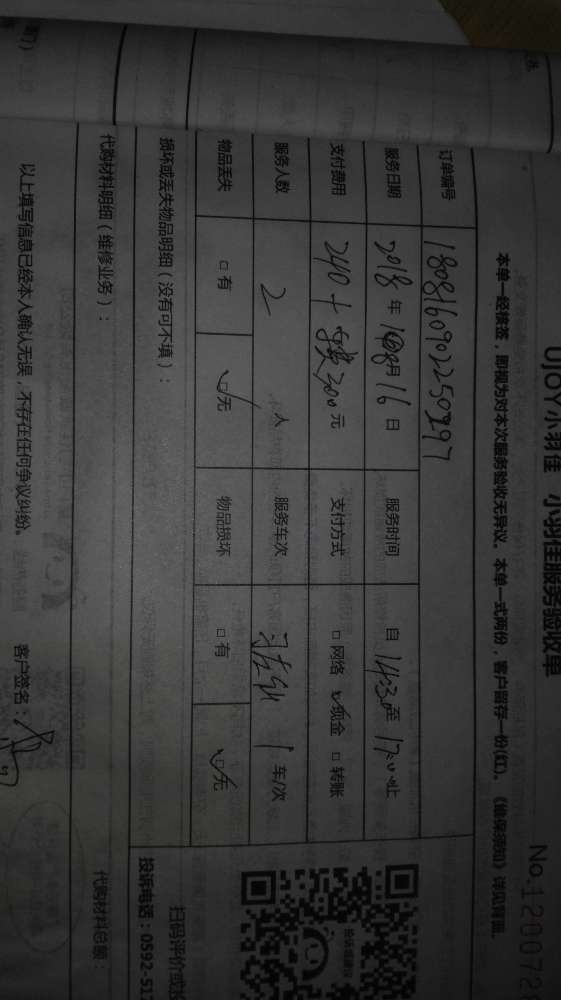 UJOY小羽佳 小羽佳服务验收单
No.120072
本单一经核签，即视为对本次服务验收无异议。本单一式两份，客户留存一份(红)。《维保须知》详见背面。
订单编号 18081609022250297
服务日期 2018 年 08 月 16 日 服务时间 自 14:30 至 17:00 止
支付费用 240+ 300 元 支付方式 □网络 ☑现金 □转账
服务人数 2 人 服务车次 1 车/次
物品丢失 □有 ☑无 物品损坏 □有 ☑无
损坏或丢失物品明细（没有可不填）：
代购材料明细（维修业务）：
代购材料总额：
扫码评价或投
投诉电话：0592-51
以上填写信息已经本人确认无误，不存在任何争议纠纷。
客户签名：